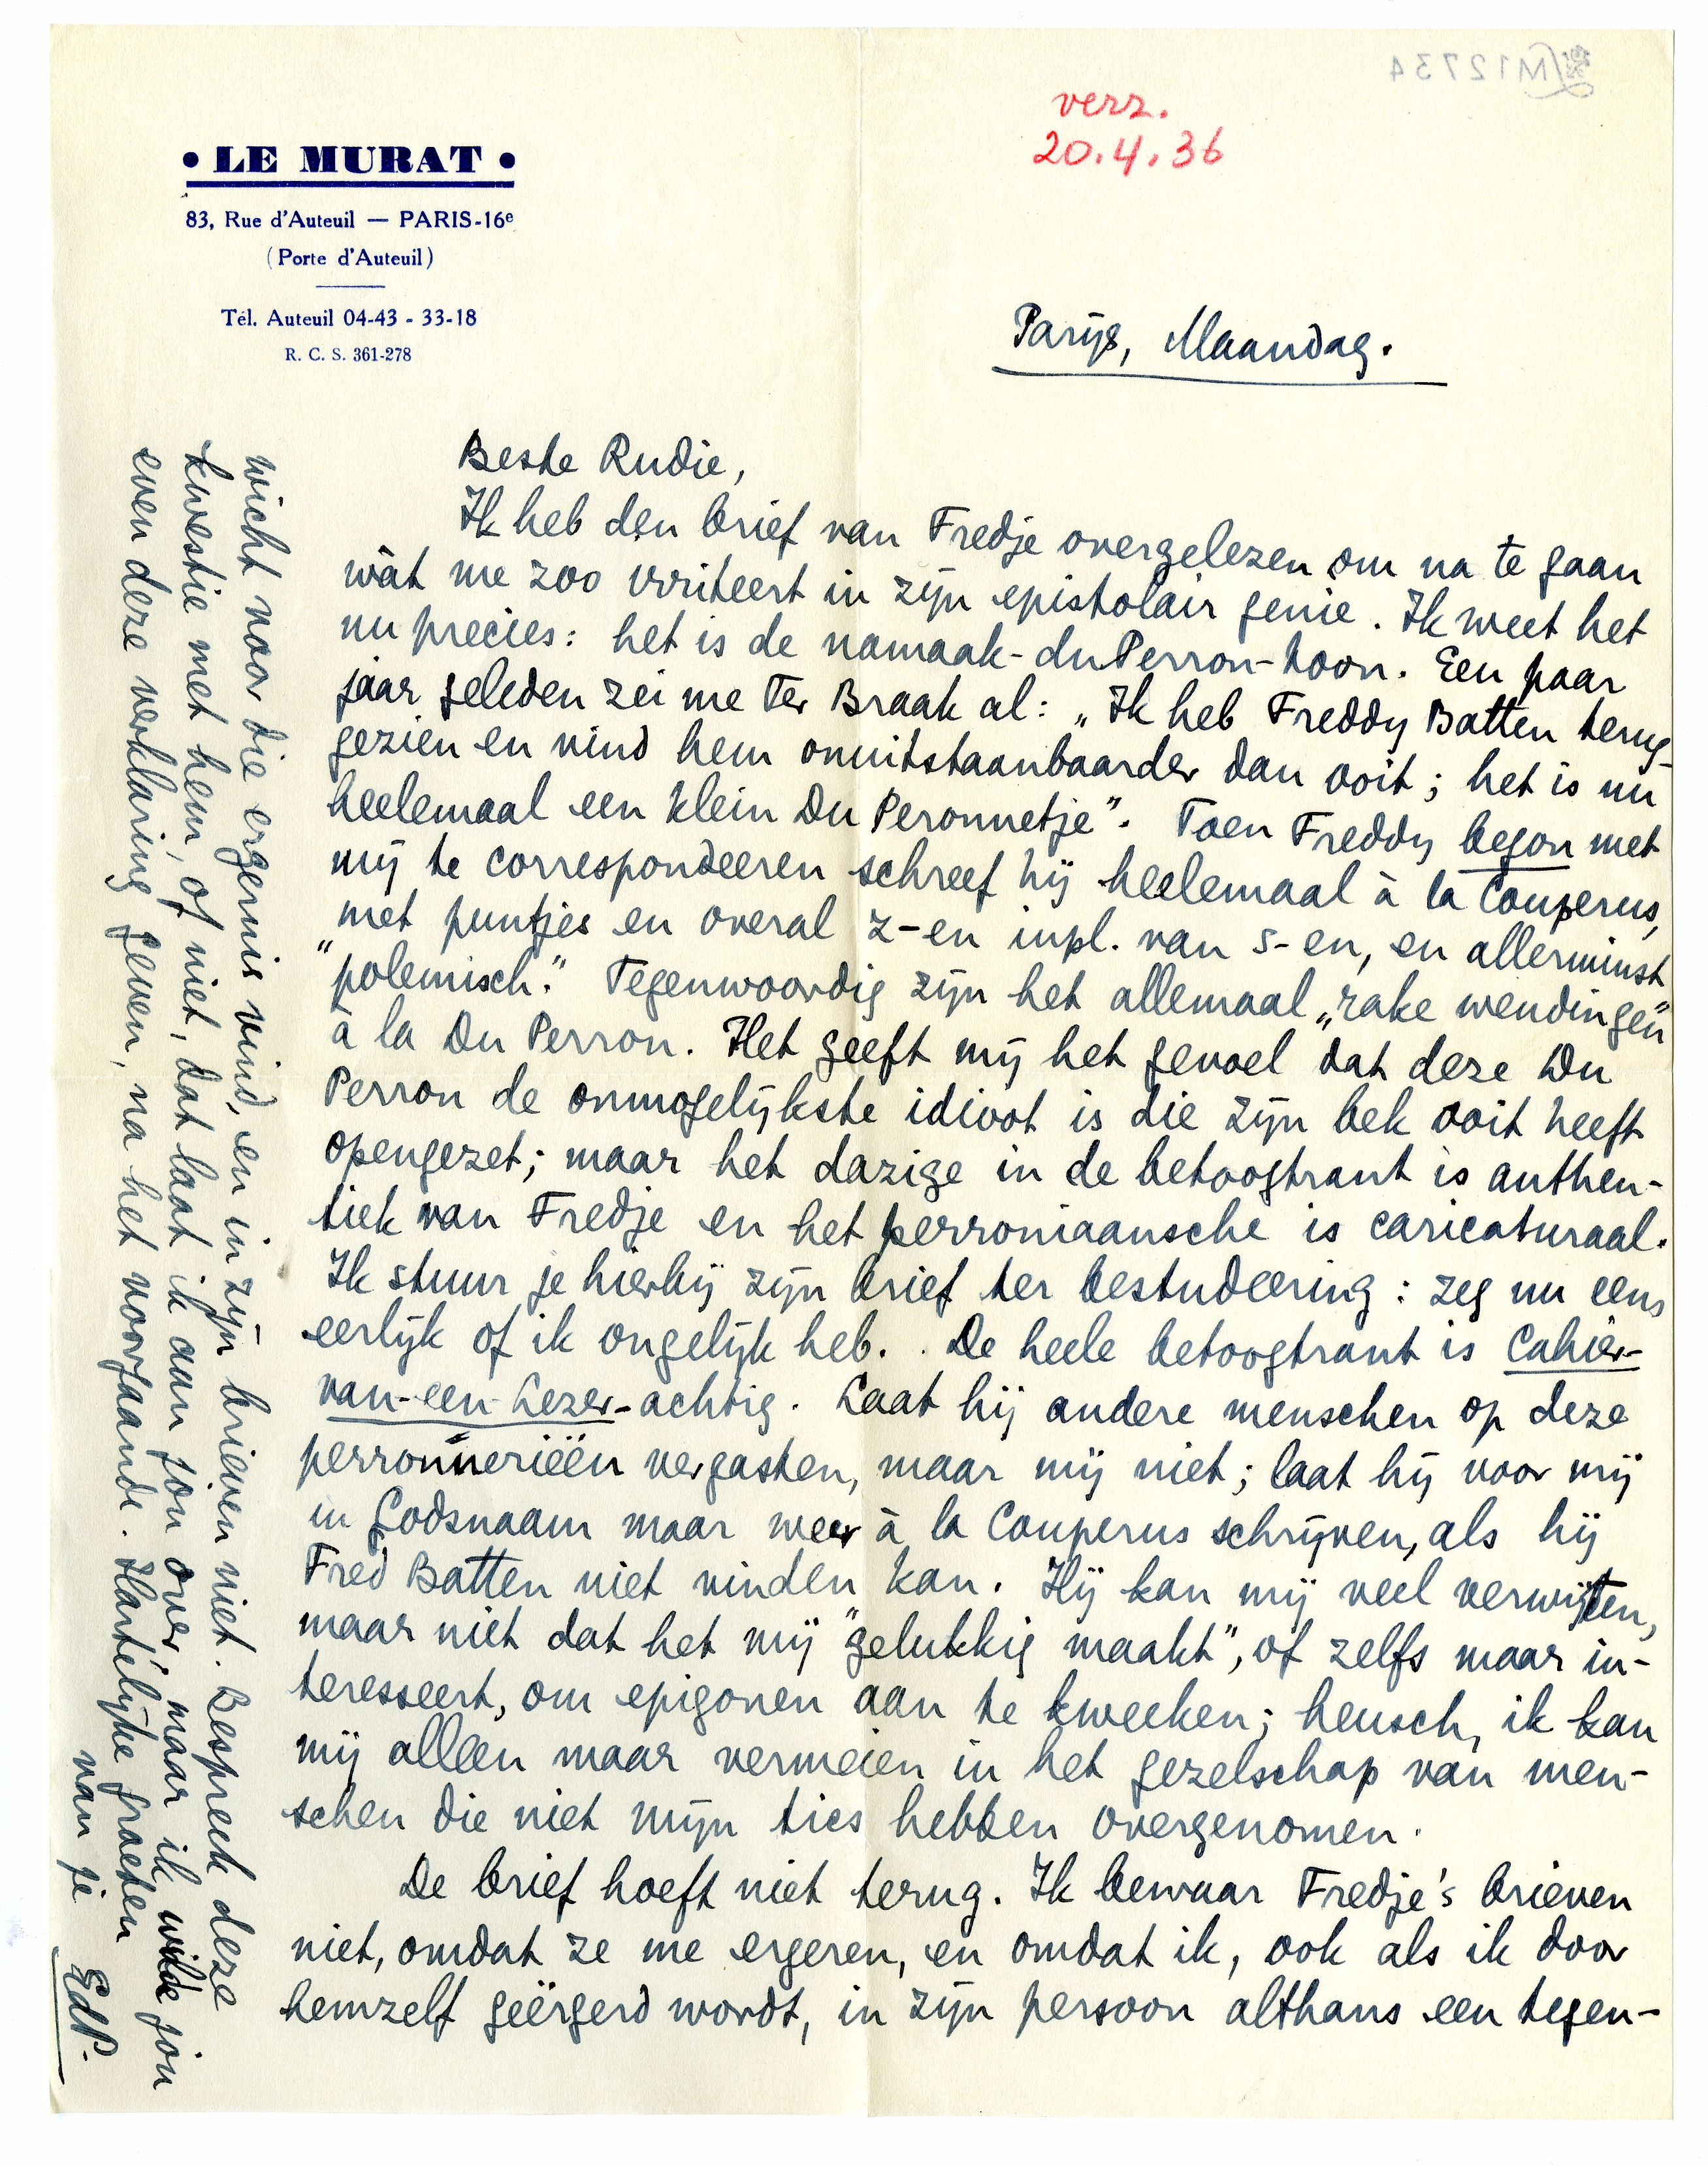 M12734
verz.
20.4.36
• LE MURAT •
83, Rue d'Auteuil — PARIS-16e
(Porte d'Auteuil)
Tél. Auteuil 04-43 - 33-18
R. C. S. 361-278
Parijs, Maandag.
Beste Rudie,
Ik heb den brief van Fredje overgelezen om na te gaan
wàt me zoo irriteert in zijn epistolair genie. Ik weet het
nu precies: het is de namaak-duPerron-toon. Een paar
jaar geleden zei me Ter Braak al: „Ik heb Freddy Batten terug-
gezien en vind hem onuitstaanbaarder dan ooit; het is nu
heelemaal een klein Du Peronnetje”. Toen Freddy begon met
mij te correspondeeren schreef hij heelemaal à la Couperus,
met puntjes en overal z-en inpl. van s-en, en allerminst
"polemisch." Tegenwoordig zijn het allemaal „rake wendingen"
à la Du Perron. Het geeft mij het gevoel dat deze Du
Perron de onmogelijkste idioot is die zijn bek ooit heeft
opengezet; maar het dazige in de betoogtrant is authen-
tiek van Fredje en het perroniaansche is caricaturaal.
Ik stuur je hierbij zijn brief ter bestudeering: zeg nu eens
eerlijk of ik ongelijk heb. De heele betoogtrant is Cahier-
van-een-Lezer-achtig. Laat hij andere menschen op deze
perronnerieën vergasten, maar mij niet; laat hij voor mij
in Godsnaam maar weer à la Couperus schrijven, als hij
Fred Batten niet vinden kan. Hij kan mij veel verwijten,
maar niet dat het mij "gelukkig maakt", of zelfs maar in-
teresseert, om epigonen aan te kweeken; heusch, ik kan
mij alleen maar vermeien in het gezelschap van men-
schen die niet mijn tics hebben overgenomen.
De brief hoeft niet terug. Ik bewaar Fredje's brieven
niet, omdat ze me ergeren, en omdat ik, ook als ik door
hemzelf geërgerd wordt, in zijn persoon althans een tegen-
wicht voor die ergernis vind, en in zijn brieven niet. Bespreek deze
kwestie met hem, of niet, dat laat ik aan jou over, maar ik wilde jou
even deze verklaring geven, na het voorgaande. Hartelijke groeten
van je
EdP.